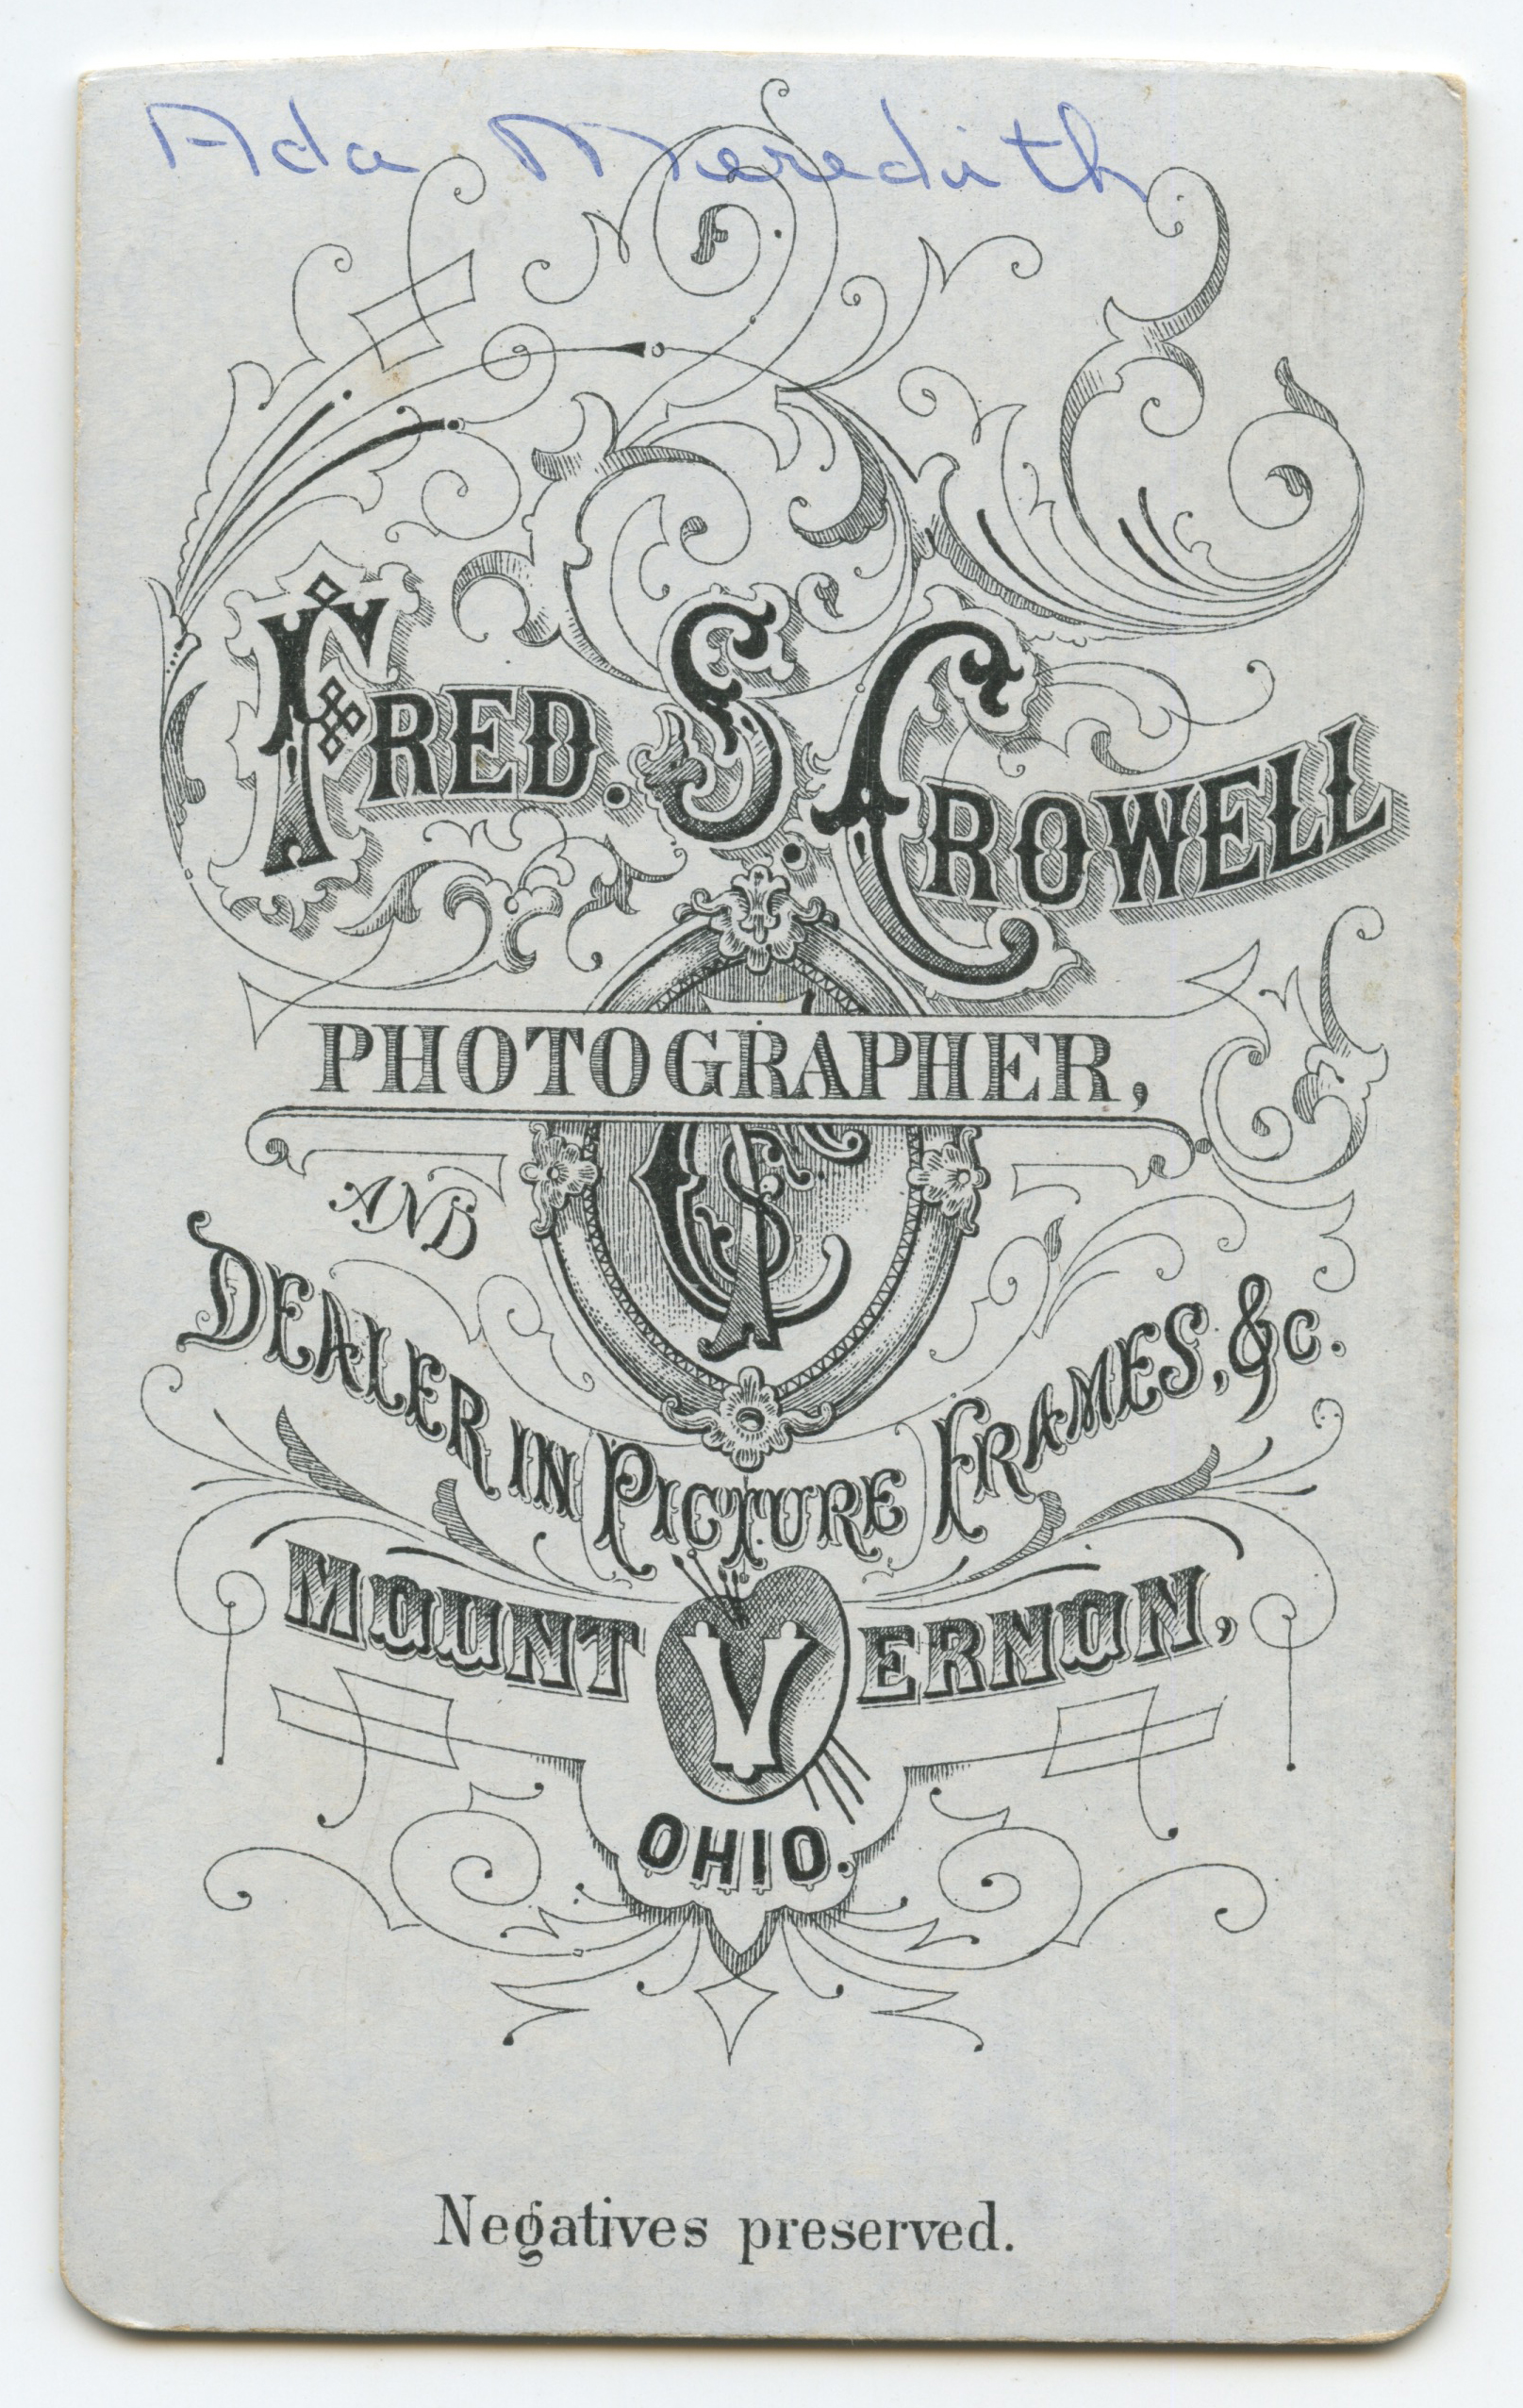 Ada Meredith
FRED. S. CROWELL
PHOTOGRAPHER,
AND
DEALER IN PICTURE FRAMES, &c.
MOUNT VERNON,
OHIO.
Negatives preserved.